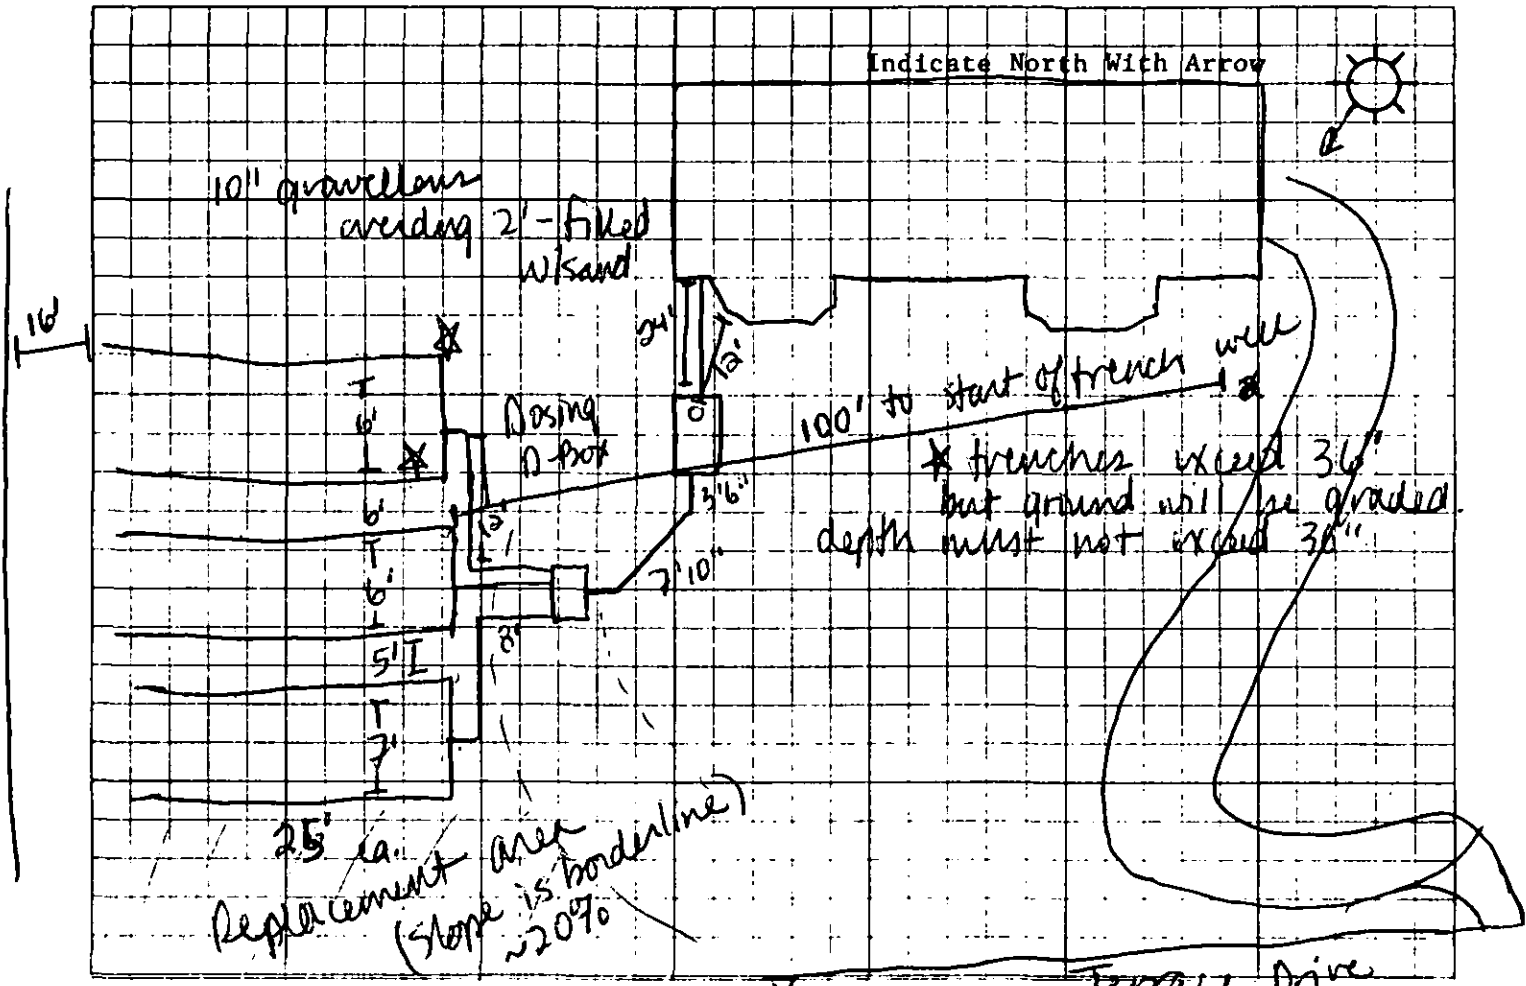 Indicate North With Arrow
10" gravelless
overlaying 2'-filled
w/sand
16'
24'
12'
6'
Dosing
D-Box
100' to start of trench well
☆ trenches exceed 36"
but ground will be graded.
depth must not exceed 36"
3'6"
6'
12'
7'10"
6'
8'
5'
7'
25' ea.
Replacement area
(slope is borderline)
~20%
Drive